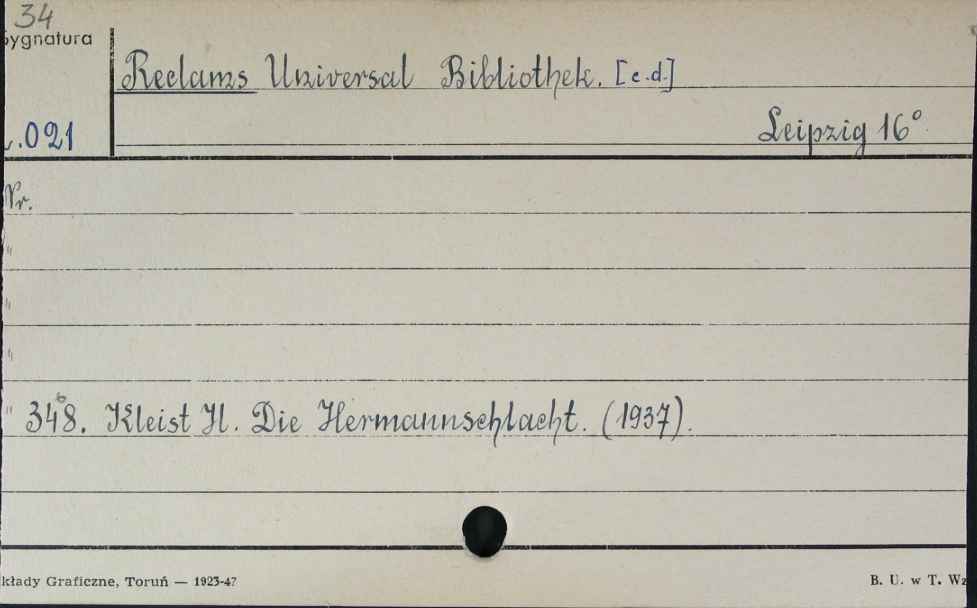 34
Sygnatura
Reclams Universal Bibliothek. [c.d.]
.021
Leipzig 16°
Nr.
"
"
"
" 348. Kleist H. Die Hermannschlacht. (1937).
kłady Graficzne, Toruń — 1923-47
B. U. w T. Wz